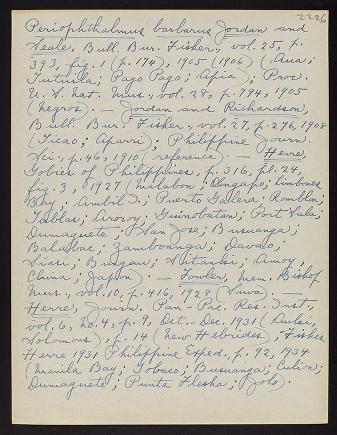 2226
Periophthalmus barbarus Jordan and
Seale, Bull. Bur. Fisher., vol. 25, p.
393, fig. 1 (p. 174), 1905 (1906) (Aua;
Tutuila; Pago Pago; Apia); Proc.
U. S. Nat. Mus., vol. 28, p. 794, 1905
(Negros). — Jordan and Richardson,
Bull. Bur. Fisher., vol. 27, p. 276, 1908
(Ticao; Aparri); Philippine Journ.
Sci., p. 46, 1910 (reference). — Herre,
Gobies of Philippines, p. 316, pl. 24,
fig. 3, 1927 (Malabon; Olongapo; Limbones
Bay; Ambil I.; Puerto Galera; Romblon;
Tablas; Aroroy; Guinobatan; Port Sula;
Dumaguete; San Jose; Busuanga;
Balabac; Zamboanga; Davao;
Siasi; Bungau; Sitankai; Amoy,
China; Japan). — Fowler, Mem. Bishop
Mus., vol. 10, p. 416, 1928 (Suva).
Herre, Journ. Pan-Pac. Res. Inst.,
vol. 6, no. 4, p. 9, Oct.-Dec. 1931 (Aulsi,
Solomons), p. 14 (New Hebrides); Fishes
Herre 1931 Philippine Exped., p. 92, 1934
(Manila Bay; Tobaco; Busuanga; Culion;
Dumaguete; Punta Flesha; Jolo).